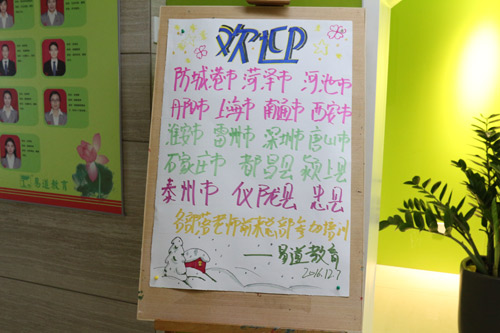 欢迎
防城港市 菏泽市 河池市
丹阳市 上海市 南通市 西安市
淮安市 雷州市 深圳市 唐山市
石家庄市 都昌县 颍上县
泰州市 仪陇县 忠县
多部落老师前来总部参加培训
——易道教育
2016.12.7
易道教育